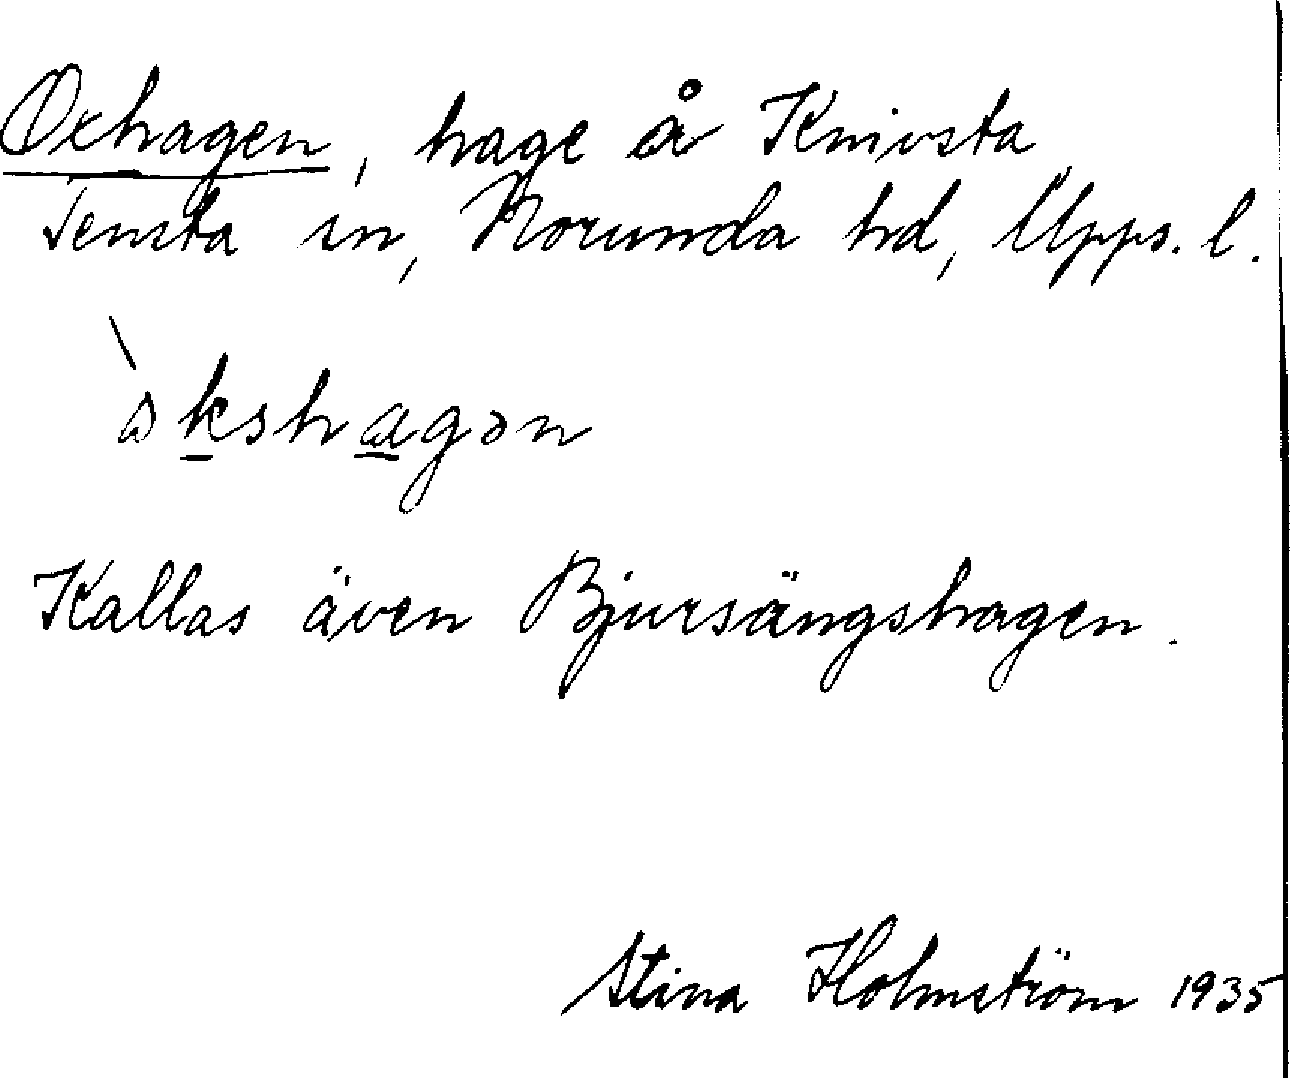 Oxhagen, hage å Knivsta
Tensta sn, Norunda hd, Upps. l.
Kallas även Bjursängshagen.
Stina Holmström 1935